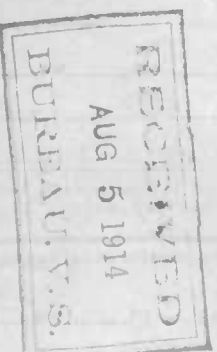 RECEIVED
AUG 5 1914
BUREAU. V. S.